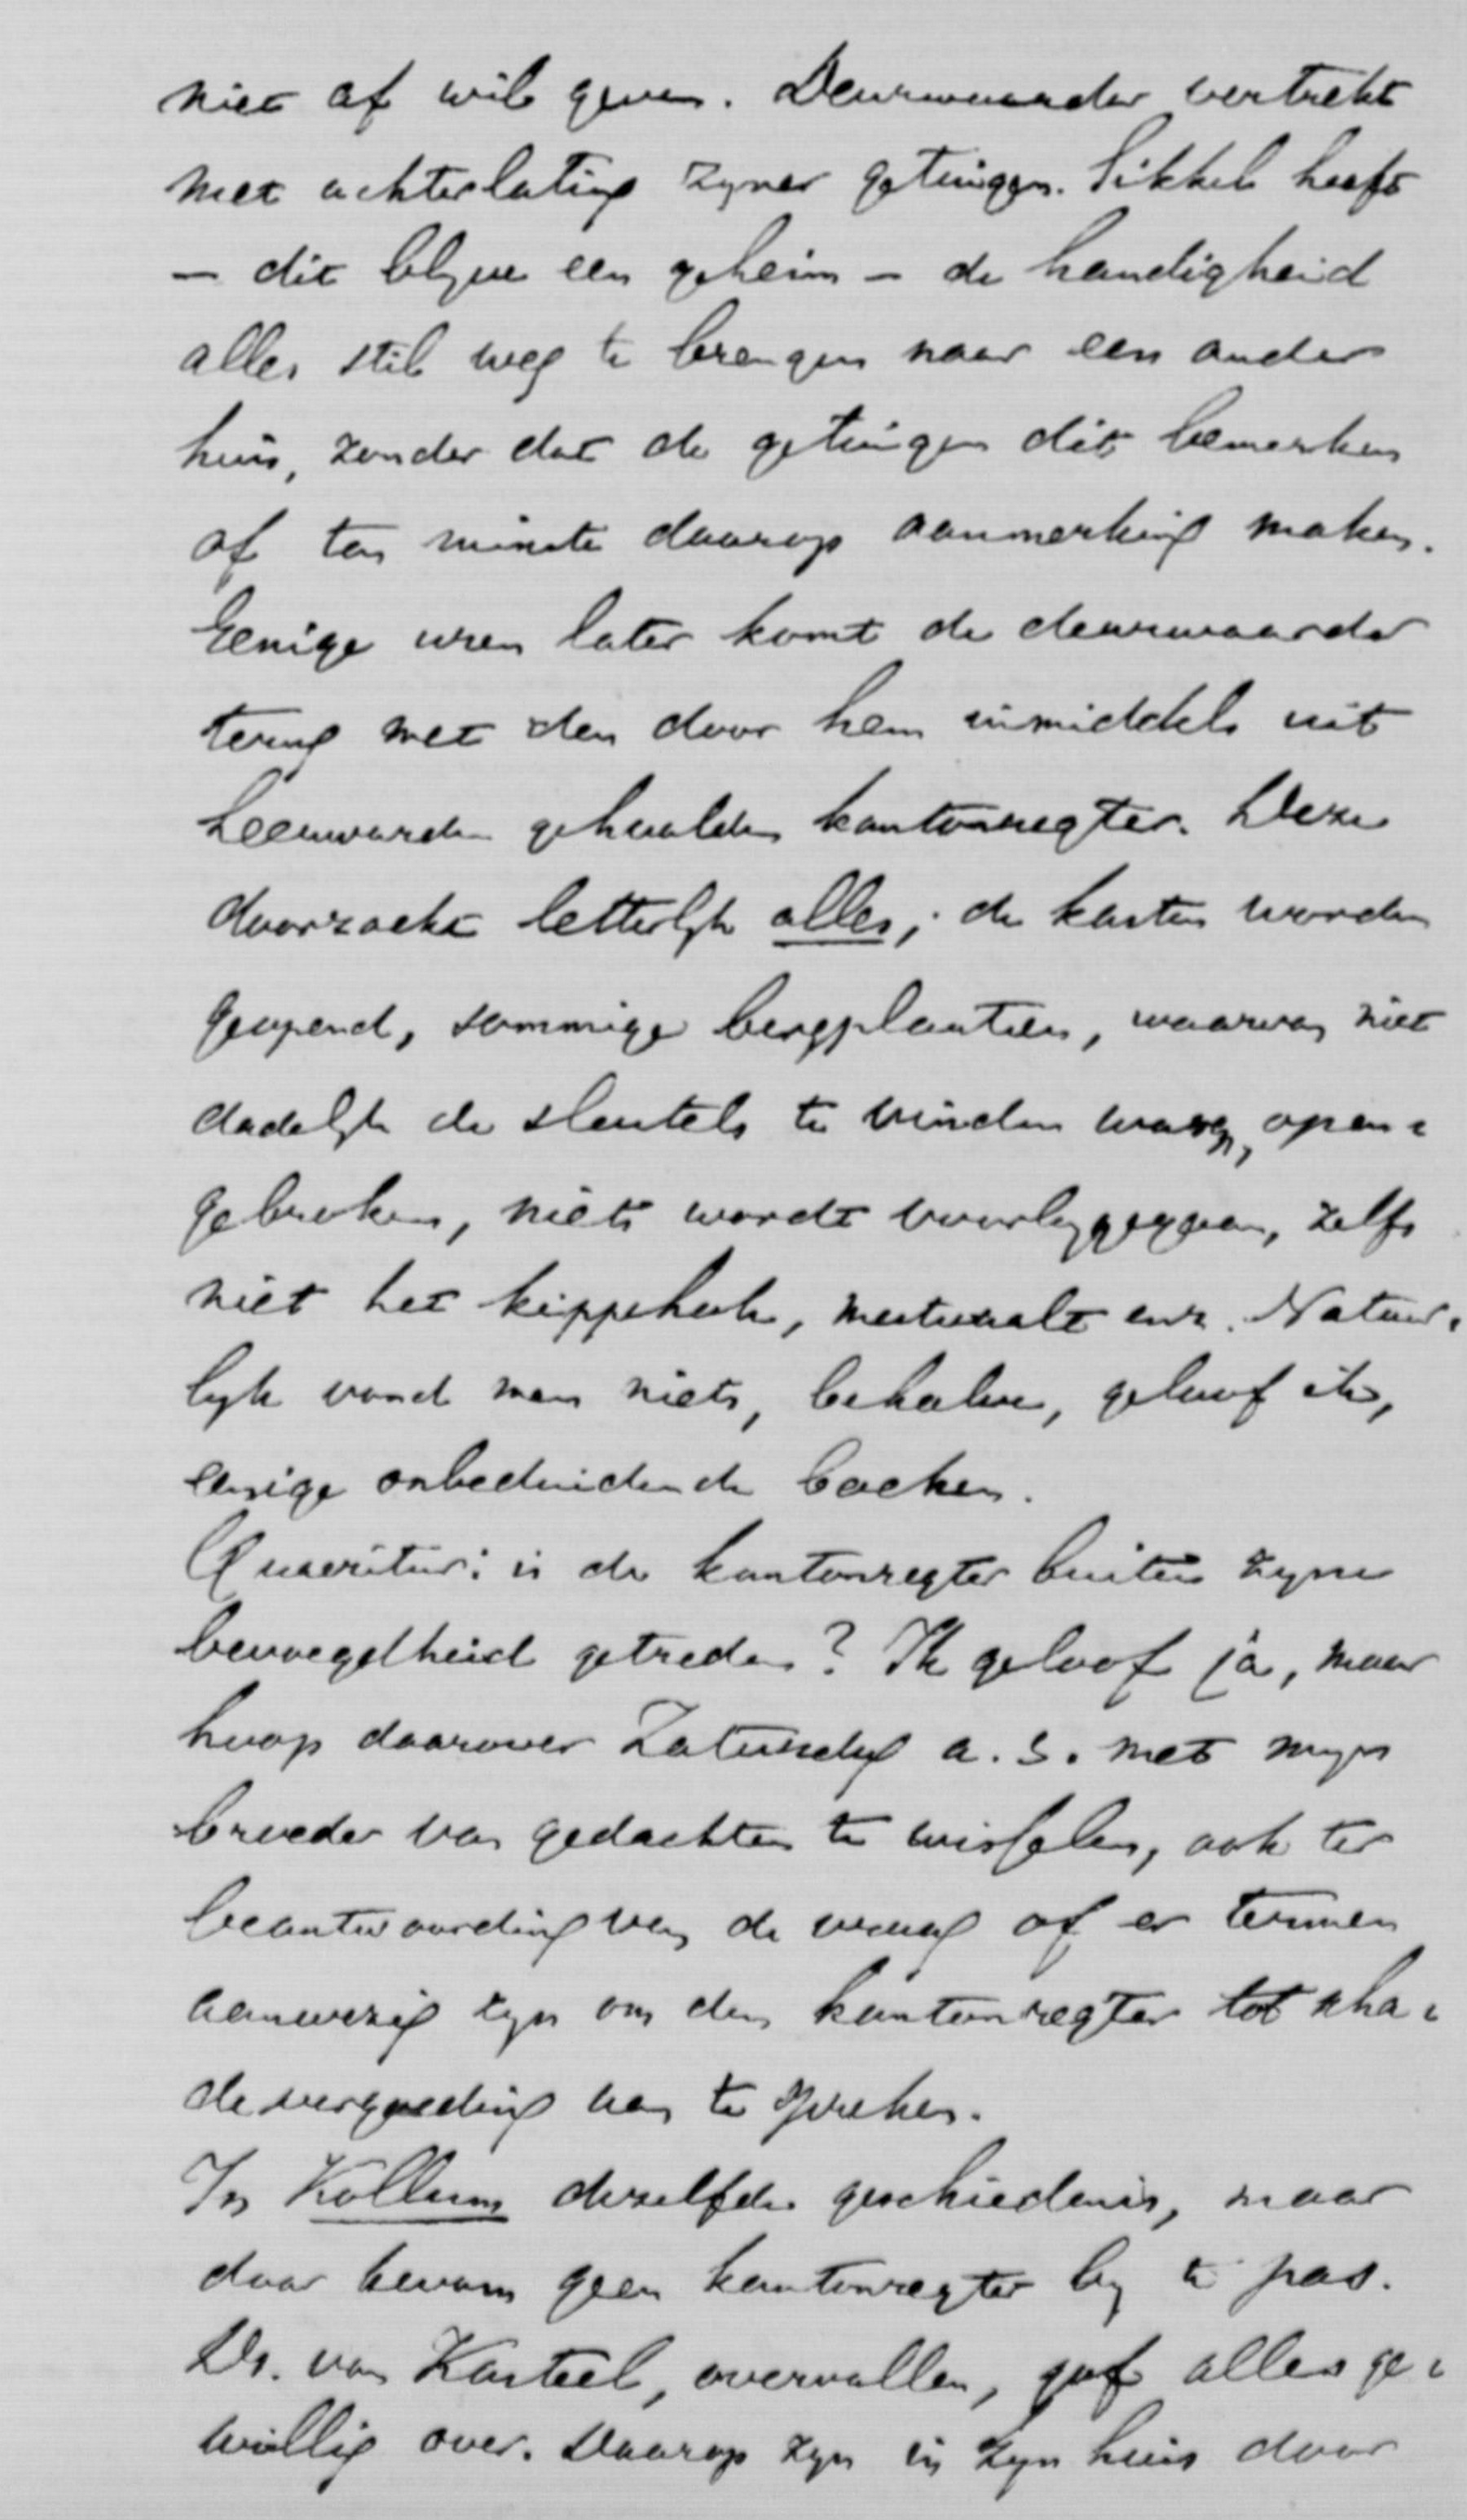 niet af wil geven. Deurwaarder vertrekt
met achterlating zyner getuigen. Sikkel heeft
— dit blyve een geheim — de handigheid
alles stil weg te brengen naar een ander
huis, zonder dat de getuigen dit bemerken
of ten minste daarop aanmerking maken.
Eenige uren later komt de deurwaarder
terug met den door hem inmiddels uit
Leeuwarden gehaalden kantonregter. Deze
doorzoekt letterlyk alles; de kasten worden
geopend, sommige bergplaatsen, waarvan niet
dadelyk de sleutels te vinden waren, open-
gebroken, niets wordt voorbygegaan, zelfs
niet het kippehok, mestvaalt enz. Natuur-
lyk vond men niets, behalve, geloof ik,
eenige onbeduidende boeken.
Quaeritur: is de kantonregter buiten zyne
bevoegdheid getreden? Ik geloof ja, maar
hoop daarover Zaturdag a. s. met myn
broeder van gedachten te wisselen, ook ter
beantwoording van de vraag of er termen
aanwezig zyn om den kantonregter tot scha-
devergoeding aan te spreken.
In Kollum dezelfde geschiedenis, maar
daar kwam geen kantonregter by te pas.
Ds. van Kasteel, overvallen, gaf alles ge-
willig over. Daarop zyn in zyn huis door